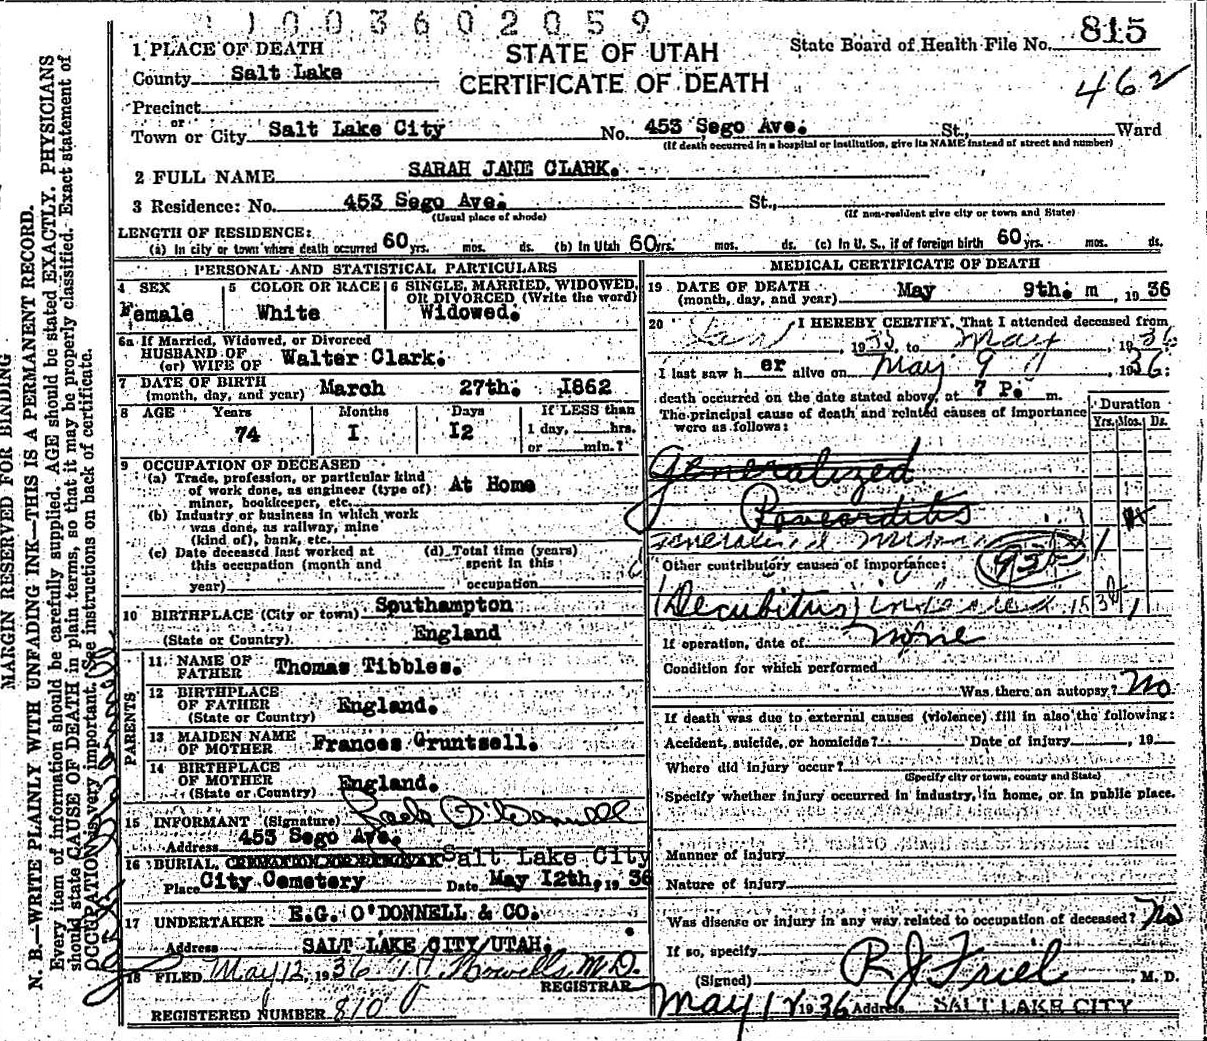 11003602059
815
1 PLACE OF DEATH
STATE OF UTAH
State Board of Health File No.
County Salt Lake
CERTIFICATE OF DEATH
462
Precinct
or
Town or City Salt Lake City No. 453 Sego Ave. St., Ward
(If death occurred in a hospital or institution, give its NAME instead of street and number)
2 FULL NAME SARAH JANE CLARK.
3 Residence: No. 453 Sego Ave. St.,
(Usual place of abode) (If non-resident give city or town and State)
LENGTH OF RESIDENCE:
(a) In city or town where death occurred 60 yrs. mos. ds. (b) In Utah 60 yrs. mos. ds. (c) In U. S., if of foreign birth 60 yrs. mos. ds.
PERSONAL AND STATISTICAL PARTICULARS
4 SEX
Female
5 COLOR OR RACE
White
6 SINGLE, MARRIED, WIDOWED, OR DIVORCED (Write the word)
Widowed.
6a If Married, Widowed, or Divorced
HUSBAND OF
(or) WIFE OF Walter Clark.
7 DATE OF BIRTH
(month, day, and year) March 27th. I862
8 AGE Years Months Days If LESS than
74 I I2 1 day, hrs.
or min.?
9 OCCUPATION OF DECEASED
(a) Trade, profession, or particular kind
of work done, as engineer (type of) At Home
miner, bookkeeper, etc.
(b) Industry or business in which work
was done, as railway, mine
(kind of), bank, etc.
(c) Date deceased last worked at
this occupation (month and
year)
(d) Total time (years)
spent in this
occupation
10 BIRTHPLACE (City or town) Southampton
(State or Country) England
PARENTS
11 NAME OF
FATHER Thomas Tibbles.
12 BIRTHPLACE
OF FATHER England.
(State or Country)
13 MAIDEN NAME
OF MOTHER Frances Gruntsell.
14 BIRTHPLACE
OF MOTHER England.
(State or Country)
15 INFORMANT (Signature)
Address 453 Sego Ave.
16 BURIAL, Salt Lake City
Place City Cemetery Date May I2th, 19 36
17 UNDERTAKER E.G. O'DONNELL & CO.
Address SALT LAKE CITY UTAH.
18 FILED May 12, 1936 M.D.
REGISTRAR
REGISTERED NUMBER 810
MEDICAL CERTIFICATE OF DEATH
19 DATE OF DEATH
(month, day, and year) May 9th. m, 19 36
20 I HEREBY CERTIFY, That I attended deceased from
, 19 to May, 1936
I last saw her alive on May 9, 1936:
death occurred on the date stated above, at 7 P. m.
The principal cause of death and related causes of importance
were as follows:
Duration
Yrs. Mos. Ds.
Generalized
Other contributory causes of importance:
Decubitus
If operation, date of none
Condition for which performed
Was there an autopsy? No
If death was due to external causes (violence) fill in also the following:
Accident, suicide, or homicide? Date of injury , 19
Where did injury occur?
(Specify city or town, county and State)
Specify whether injury occurred in industry, in home, or in public place.
Manner of injury
Nature of injury
Was disease or injury in any way related to occupation of deceased? No
If so, specify
(Signed) R J Friel M. D.
May 12 1936 Address SALT LAKE CITY
MARGIN RESERVED FOR BINDING
N. B.—WRITE PLAINLY WITH UNFADING INK—THIS IS A PERMANENT RECORD.
Every item of information should be carefully supplied. AGE should be stated EXACTLY. PHYSICIANS
should state CAUSE OF DEATH in plain terms, so that it may be properly classified. Exact statement of
OCCUPATION is very important. (See instructions on back of certificate.